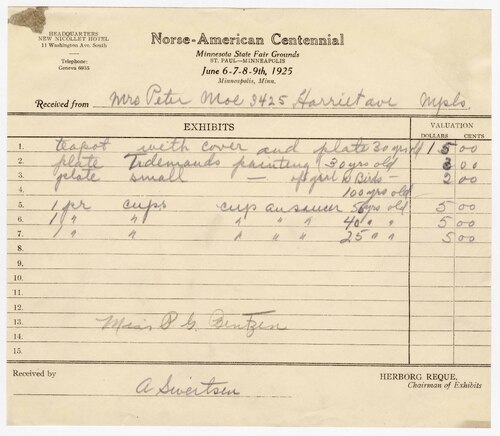 HEADQUARTERS
NEW NICOLLET HOTEL
11 Washington Ave. South
Telephone:
Geneva 6835
Norse-American Centennial
Minnesota State Fair Grounds
ST. PAUL—MINNEAPOLIS
June 6-7-8-9th, 1925
Minneapolis, Minn.
Received from Mrs Peter Moe 3425 Harriet ave Mpls
EXHIBITS VALUATION
DOLLARS CENTS
1. teapot with cover and plate 30 yrs old 15 00
2. plate Tidemands painting 30 yrs old 3 00
3. plate small — of girl & Birds — 2 00
4. 100 yrs old
5. 1 pr cups cup an saucer 50 yrs old 5 00
6. 1 " " " " " 40 " " 5 00
7. 1 " " " " " 25 " " 5 00
8.
9.
10.
11.
12.
13. Miss P G. Bentzen
14.
15.
Received by HERBORG REQUE,
A Sivertsen Chairman of Exhibits